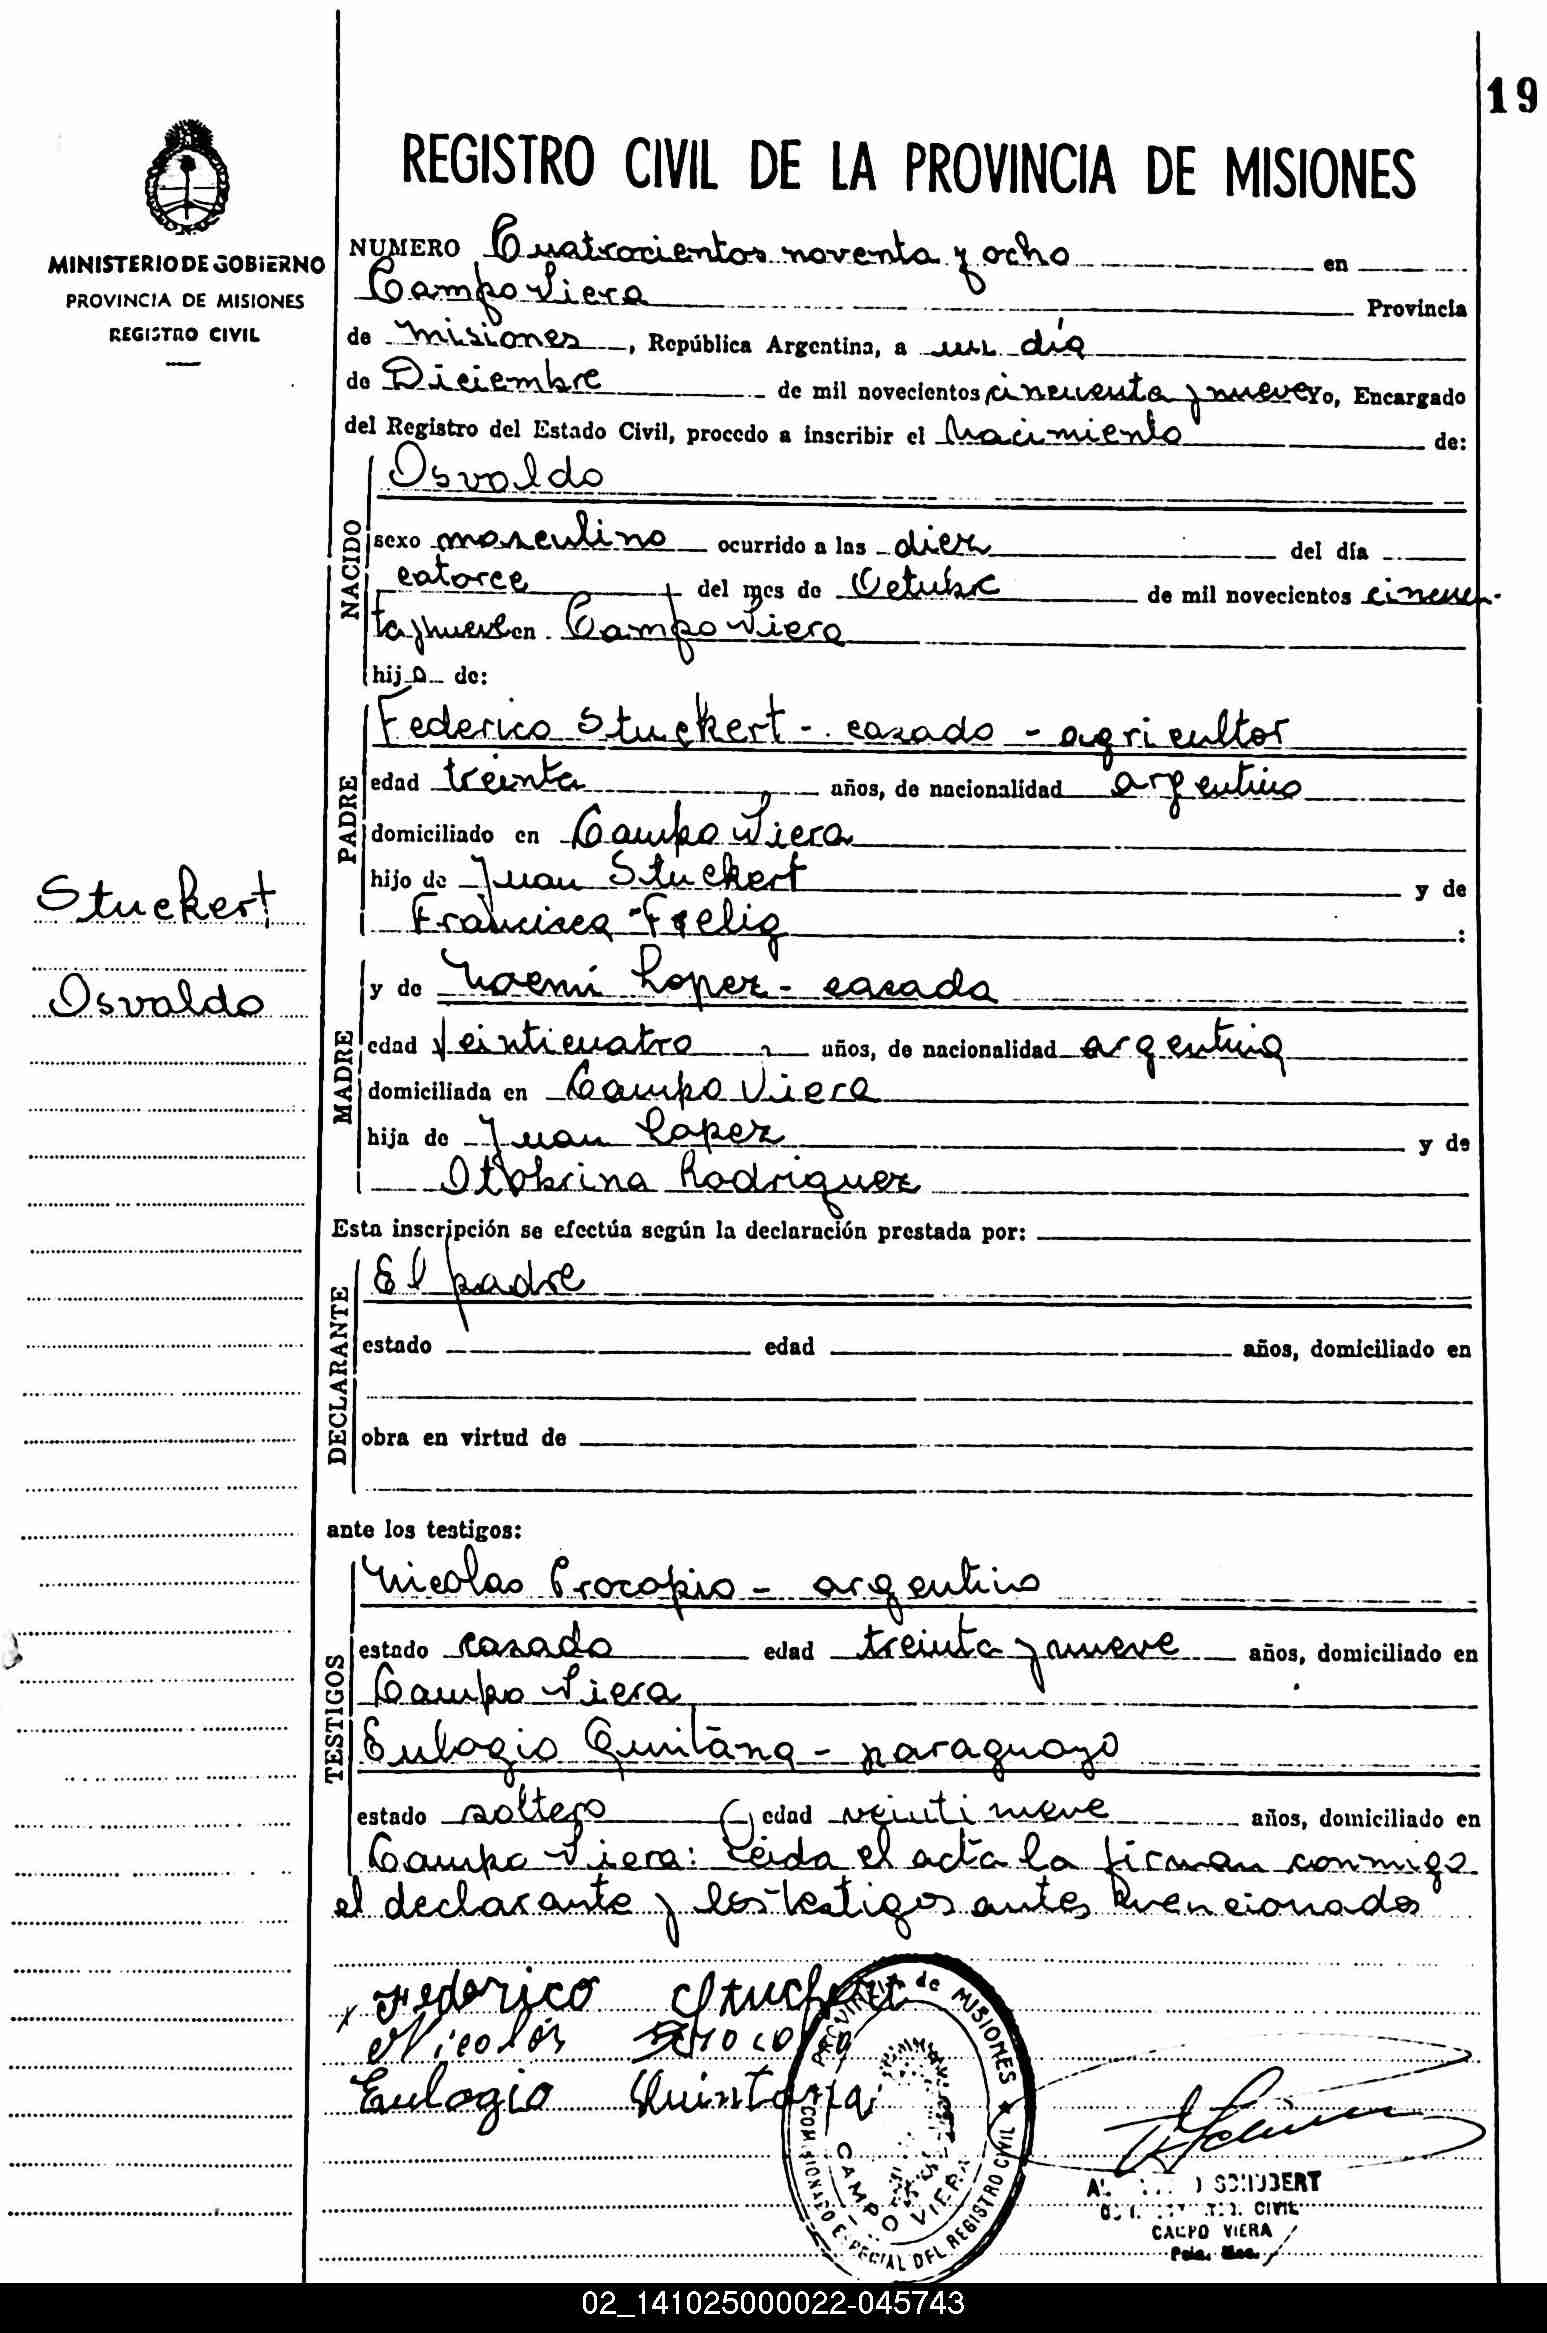 19
REGISTRO CIVIL DE LA PROVINCIA DE MISIONES
MINISTERIO DE GOBIERNO
PROVINCIA DE MISIONES
REGISTRO CIVIL
NUMERO Cuatrocientos noventa y ocho en
Campo Viera Provincia
de misiones, República Argentina, a un día
de Diciembre de mil novecientos cincuenta y nueve yo, Encargado
del Registro del Estado Civil, procedo a inscribir el Nacimiento de:
NACIDO
Osvaldo
sexo masculino ocurrido a las diez del día
catorce del mes de Octubre de mil novecientos cincuen-
ta y nueve en Campo Viera
hijo de:
PADRE
Federico Stuckert - casado - agricultor
edad treinta años, de nacionalidad argentino
domiciliado en Campo Viera
hijo de Juan Stuckert y de
Francisca
Stuckert
Osvaldo
MADRE
y de Noemi Lopez - casada
edad Veinticuatro años, de nacionalidad argentina
domiciliada en Campo Viera
hija de Juan Lopez y de
Rodriguez
Esta inscripción se efectúa según la declaración prestada por:
DECLARANTE
El padre
estado edad años, domiciliado en
obra en virtud de
ante los testigos:
TESTIGOS
Nicolas Procopio - argentino
estado casado edad treinta y nueve años, domiciliado en
Campo Viera
Eulogio Quintana - paraguayo
estado soltero edad veintinueve años, domiciliado en
Campo Viera: Leida el acta la firman conmigo
el declarante y los testigos antes mencionados
Federico Stuckert
Nicolás
Eulogio Quintana
PROVINCIA de MISIONES
COMISIONADO ESPECIAL DEL REGISTRO CIVIL
CAMPO VIERA
SCHUBERT
CIVIL
CAMPO VIERA
Pcia. Mnes.
02_141025000022-045743